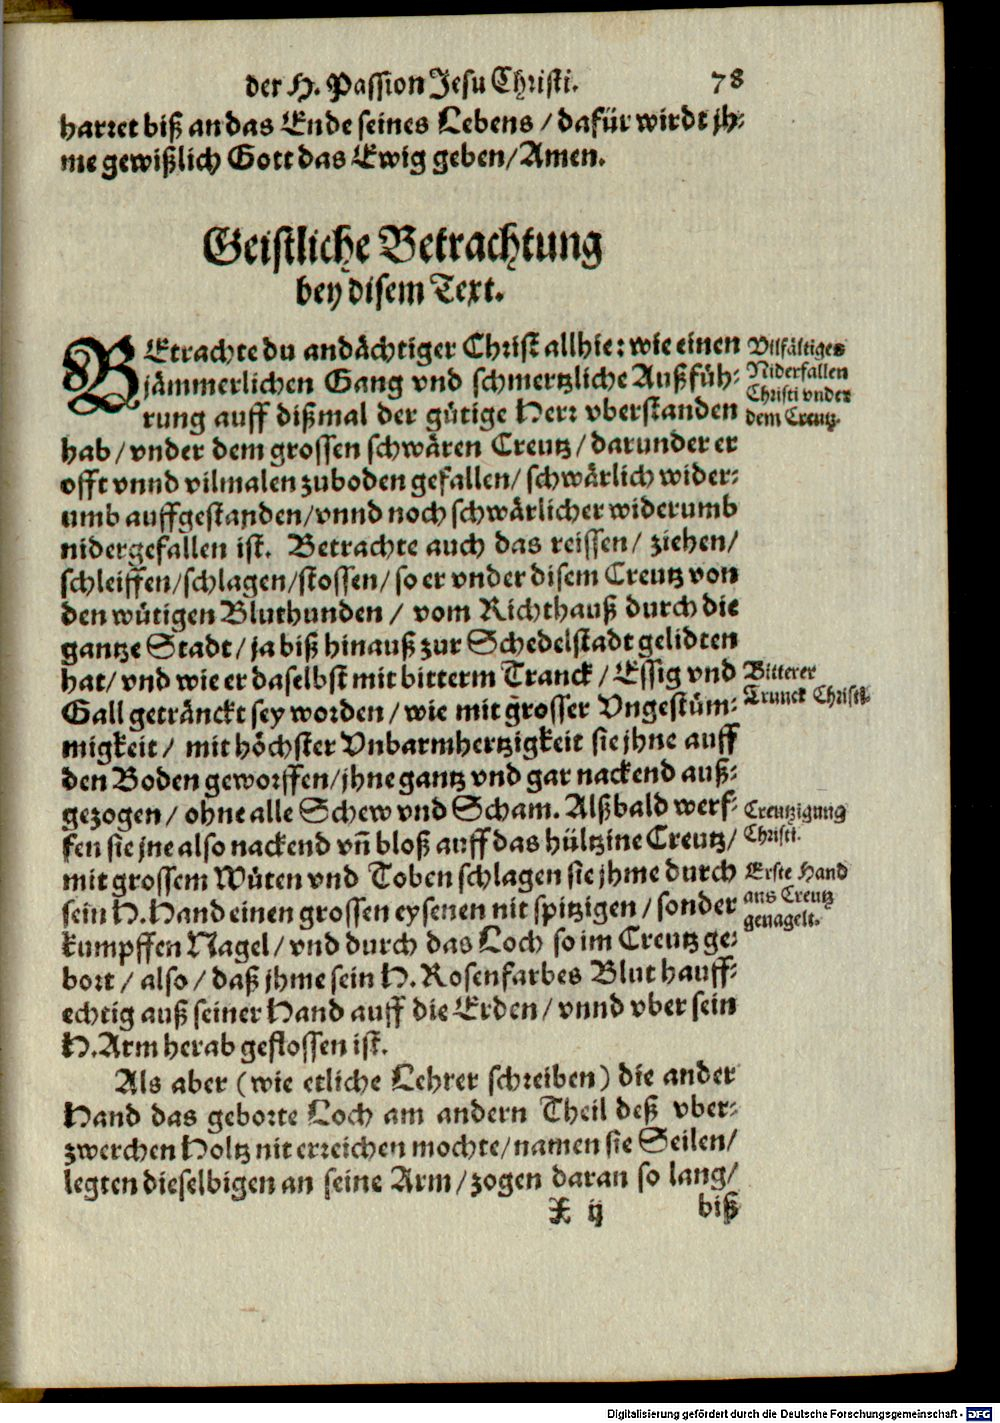 der H. Passion Jesu Christi. 78
harret biß an das Ende seines Lebens / dafür wirdt jh-
me gewißlich Gott das Ewig geben / Amen.
Geistliche Betrachtung
bey disem Text.
BEtrachte du andächtiger Christ allhie: wie einen
jämmerlichen Gang vnd schmertzliche Außfüh-
rung auff dißmal der gütige Herr vberstanden
hab / vnder dem grossen schwären Creutz / darunder er
offt vnnd vilmalen zuboden gefallen / schwärlich wider-
umb auffgestanden / vnnd noch schwärlicher widerumb
nidergefallen ist. Betrachte auch das reissen / ziehen /
schleiffen / schlagen / stossen / so er vnder disem Creutz von
den wütigen Bluthunden / vom Richthauß durch die
gantze Stadt / ja biß hinauß zur Schedelstadt gelidten
hat / vnd wie er daselbst mit bitterm Tranck / Essig vnd
Gall geträncкt sey worden / wie mit grosser Vngestüm-
migkeit / mit höchster Vnbarmhertzigkeit sie jhne auff
den Boden geworffen / jhne gantz vnd gar nackend auß-
gezogen / ohne alle Schew vnd Scham. Alßbald werf-
fen sie jne also nackend vñ bloß auff das hültzine Creutz /
mit grossem Wüten vnd Toben schlagen sie jhme durch
sein H. Hand einen grossen eysenen nit spitzigen / sonder
kumpffen Nagel / vnd durch das Loch so im Creutz ge-
bort / also / daß jhme sein H. Rosenfarbes Blut hauff-
echtig auß seiner Hand auff die Erden / vnnd vber sein
H. Arm herab geflossen ist.
Als aber (wie etliche Lehrer schreiben) die ander
Hand das geborte Loch am andern Theil deß vber-
zwerchen Holtz nit erreichen mochte / namen sie Seilen /
legten dieselbigen an seine Arm / zogen daran so lang /
X ij biß
Vilfältiges
Niderfallen
Christi vnder
dem Creutz.
Bitterer
Trunck Christi.
Creutzigung
Christi.
Erste Hand
ans Creutz
genagelt.
Digitalisierung gefördert durch die Deutsche Forschungsgemeinschaft - DFG